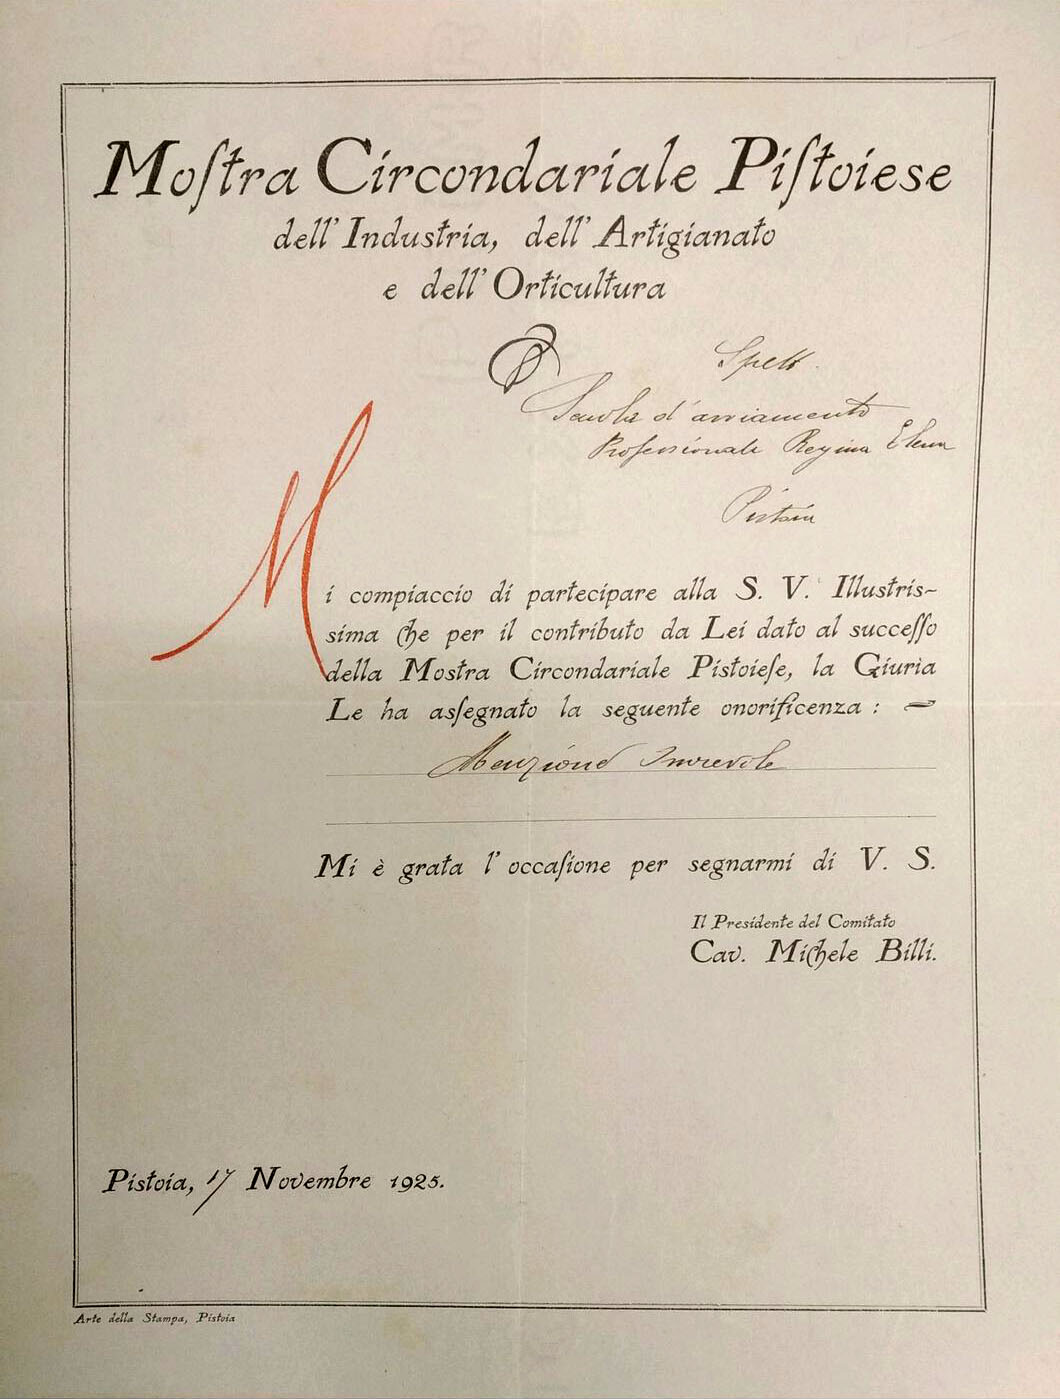 Mostra Circondariale Pistoiese
dell' Industria, dell' Artigianato
e dell' Orticultura
Spett.
Scuola d'avviamento
Professionale Regina Elena
Pistoia
Mi compiaccio di partecipare alla S. V. Illustris-
sima che per il contributo da Lei dato al successo
della Mostra Circondariale Pistoiese, la Giuria
Le ha assegnato la seguente onorificenza :
Menzione Onorevole
Mi è grata l' occasione per segnarmi di V. S.
Il Presidente del Comitato
Cav. Michele Billi.
Pistoia, 17 Novembre 1925.
Arte della Stampa, Pistoia